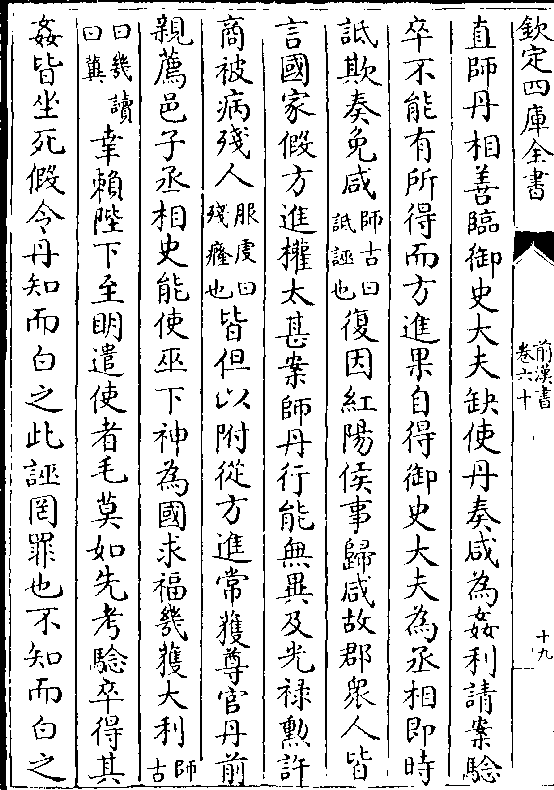 欽定四庫全書
前漢書
卷六十
十九
直師丹相善臨御史大夫缺使丹奏咸為姦利請案驗
卒不能有所得而方進果自得御史大夫為丞相即時
詆欺奏免咸師古曰詆誣也復因紅陽侯事歸咸故郡衆人皆
言國家假方進權太甚案師丹行能無異及光祿勲許
商被病殘人服虔曰殘癃也皆但以附從方進常獲尊官丹前
親薦邑子丞相史能使巫下神為國求福幾獲大利師古
曰幾讀曰冀幸賴陛下至明遣使者毛莫如先考驗卒得其
姦皆坐死假令丹知而白之此誣罔罪也不知而白之